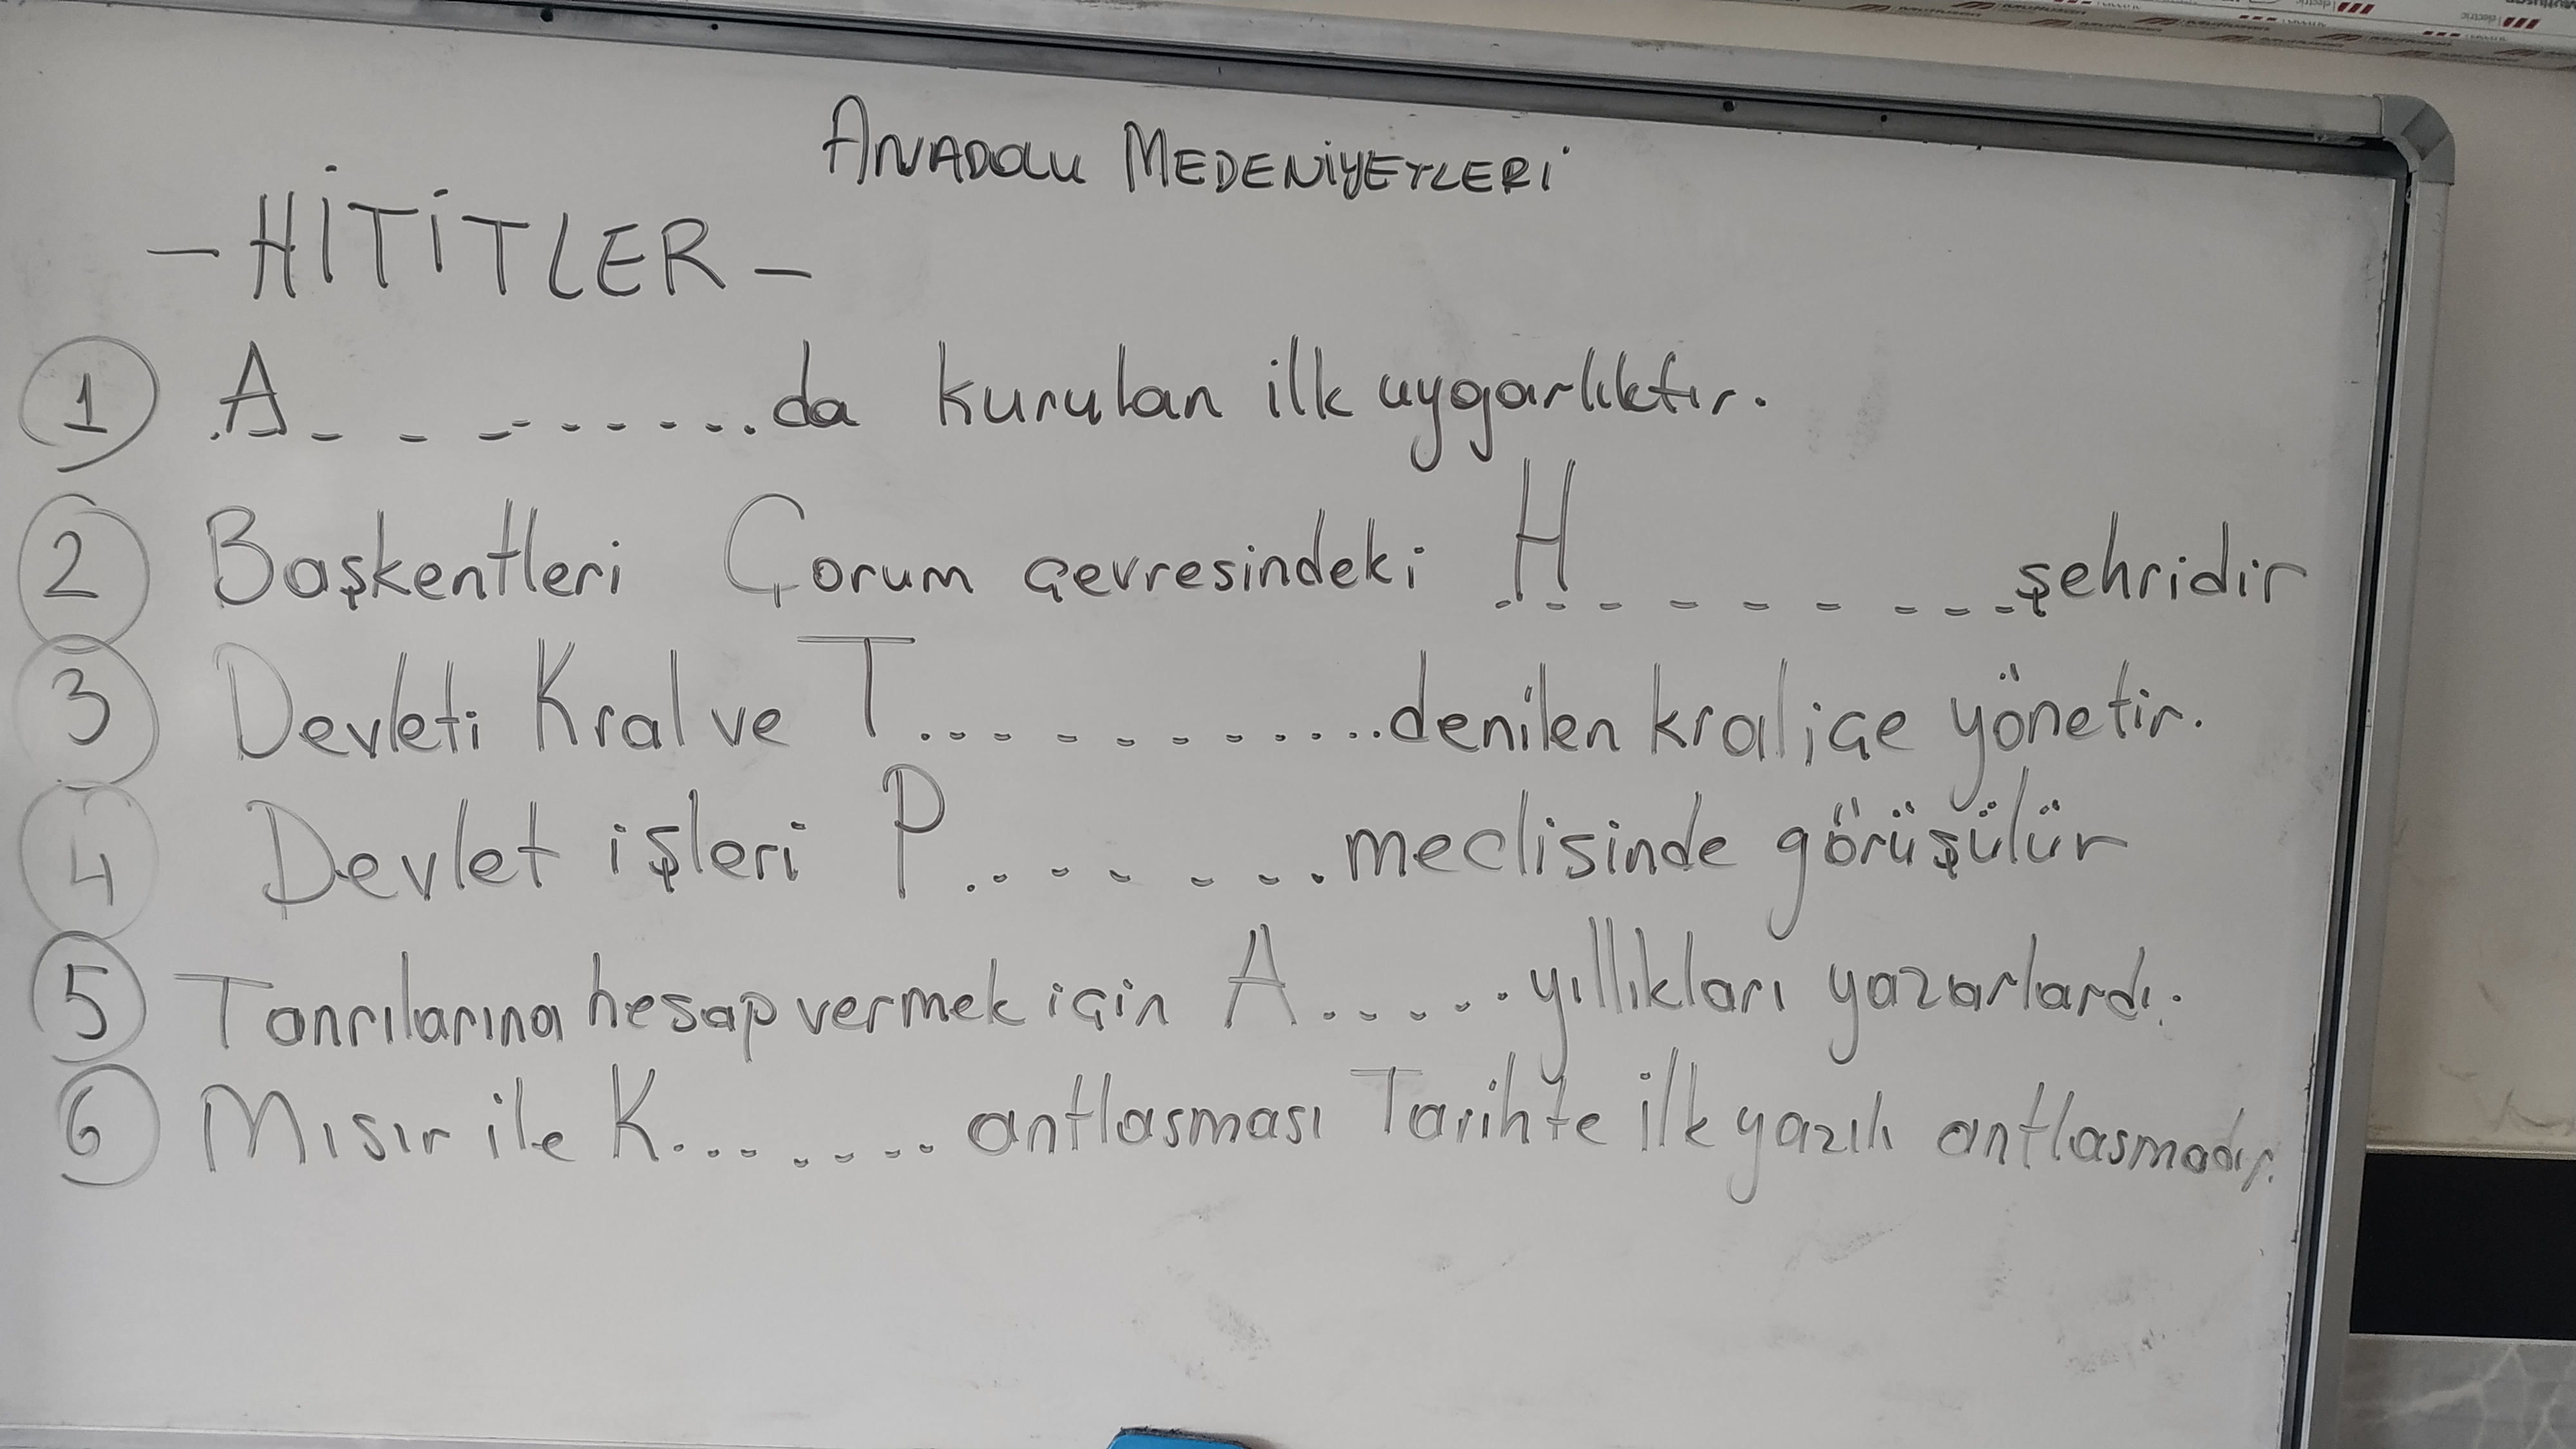 ANADOLU MEDENİYETLERİ
- HİTİTLER -
1 A. _ _ _ - - - - - . da kurulan ilk uygarlıktır.
2 Başkentleri Çorum çevresindeki H - - - - - - - - - şehridir
3 Devleti Kral ve T. . . - - - - - - . . . . denilen kraliçe yönetir.
4 Devlet işleri P . . - - - - - . meclisinde görüşülür
5 Tanrılarına hesap vermek için A . . . . - . . yıllıkları yazarlardı.
6 Mısır ile K. . . . - - - - . antlasması Tarihte ilk yazılı antlasmadır.